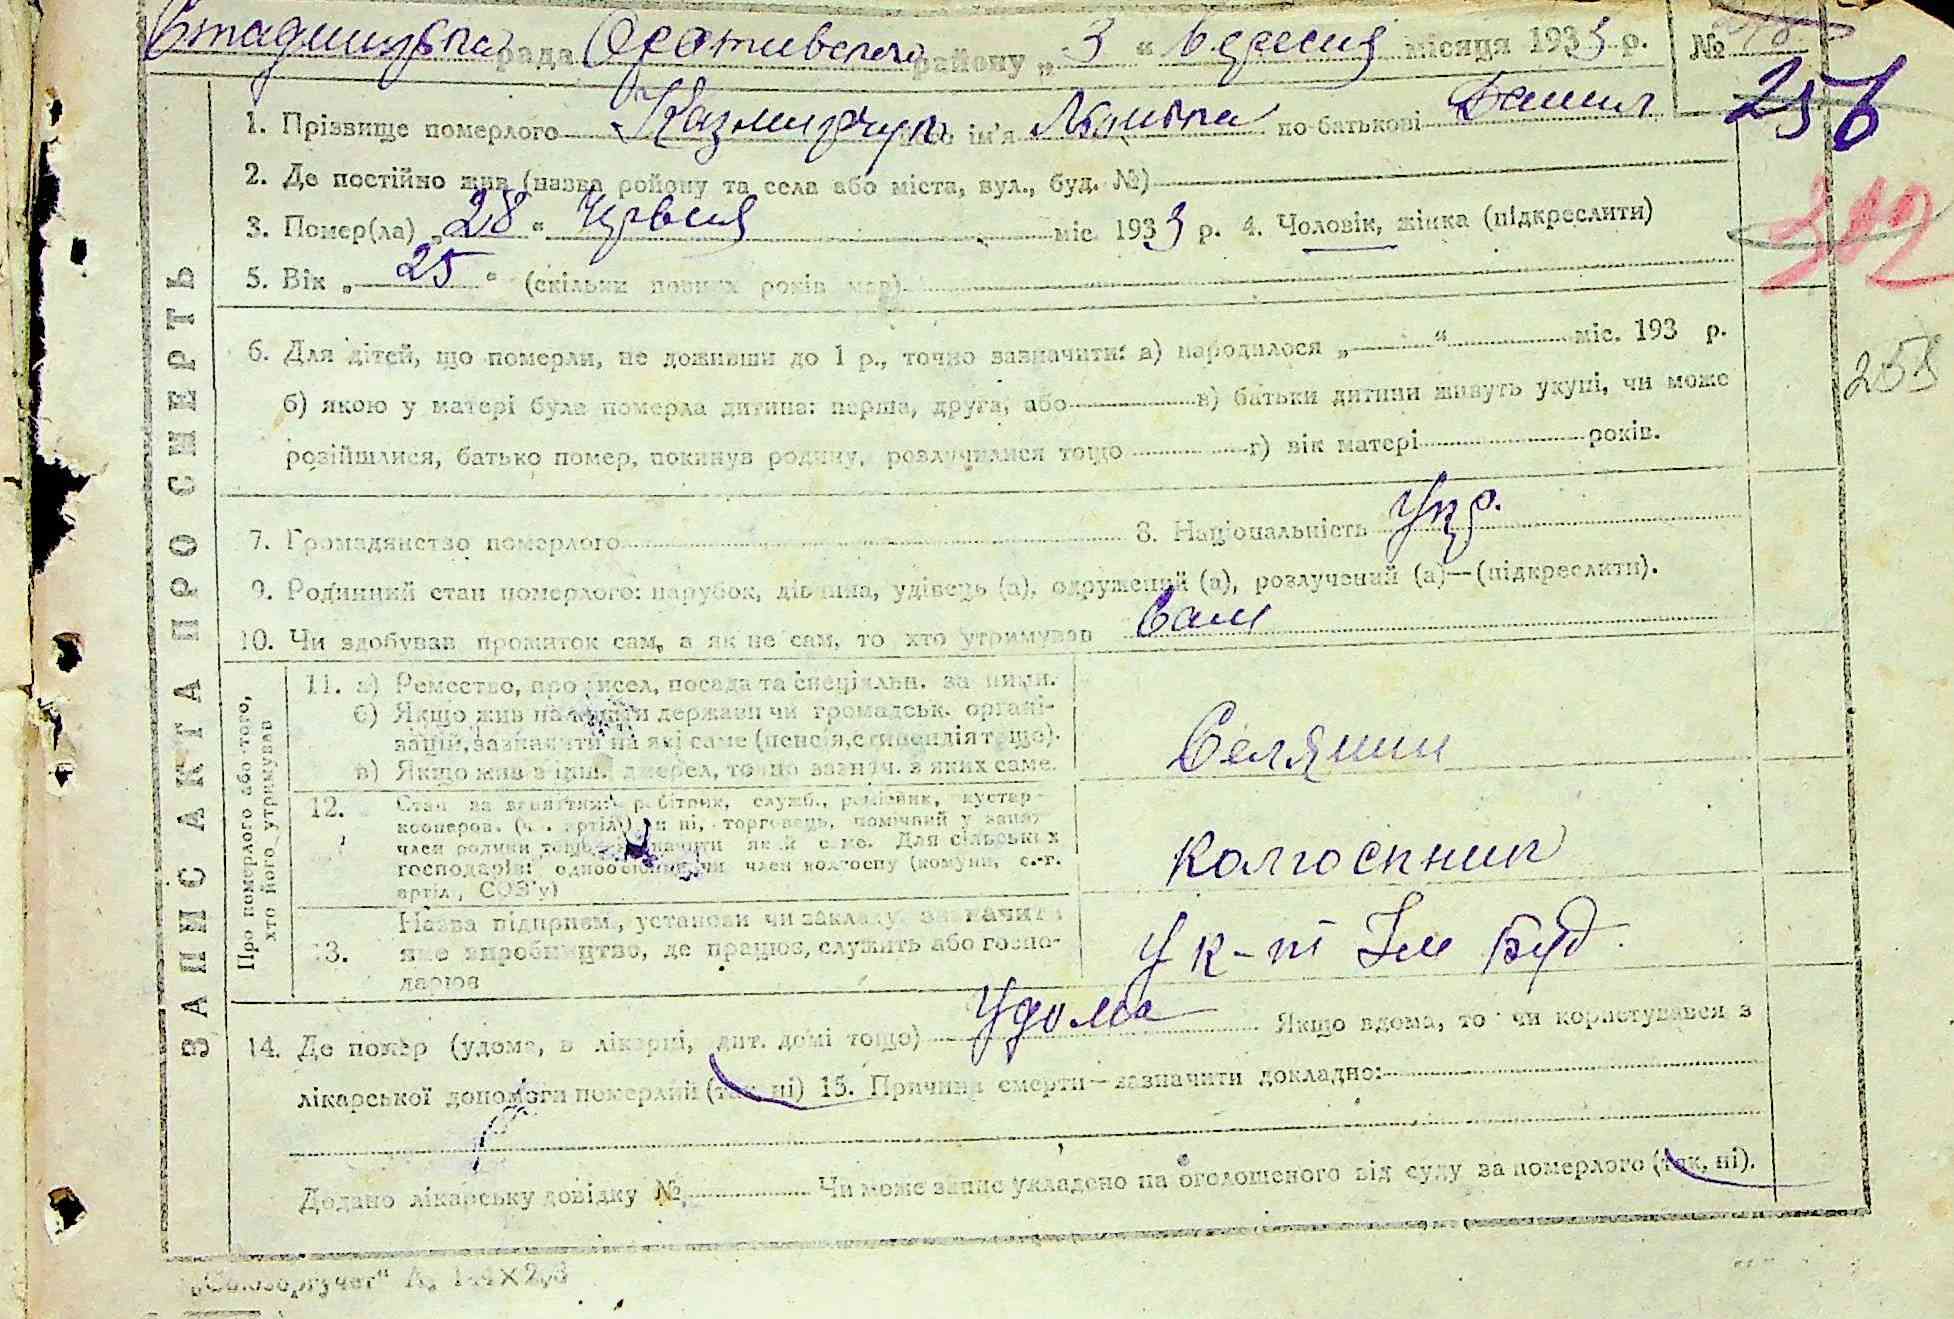 рада Оратівського району „3" Вересня місяця 1933 р. №
256
1. Прізвище померлого Казмирчук його ім'я по-батькові Данил
342
2. Де постійно жив (назва ройону та села або міста, вул., буд. №)
3. Помер(ла) „28" Червня міс. 1933 р. 4. Чоловік, жінка (підкреслити)
5. Вік „25" (скільки повних років мав)
6. Для дітей, що померли, не доживши до 1 р., точно зазначити: а) народилося „ " міс. 193 р.
б) якою у матері була померла дитина: перша, друга, або в) батьки дитини живуть укупі, чи може
розійшлися, батько помер, покинув родину, розлучилися тощо г) вік матері років.
7. Громадянство померлого 8. Національність Укр.
9. Родинний стан померлого: парубок, дівчина, удівець (а), одружений (а), розлучений (а)—(підкреслити).
10. Чи здобував прожиток сам, а як не сам, то хто утримував Сам
ЗАПИС АКТА ПРО СМЕРТЬ
Про померлого або того,
хто його утримував
11. а) Ремество, промисел, посада та спеціяльн. за ними.
б) Якщо жив на кошти держави чи громадськ. органі-
зацій, зазначити на які саме (пенсія, стипендія тощо).
в) Якщо жив з інш. джерел, точно зазнач. з яких саме.
Селянин
12. Стан за заняттям: робітник, служб., ремісник, кустар-
кооперов. (чл. артілі) чи ні, торговець, помічний у занят.
член родини тощо, зазначити який саме. Для сільських
господарів: одноосібник чи член колгоспу (комуни, с.-г.
артілі, СОЗ'у)
колгоспник
13. Назва підприєм., установи чи закладу, зазначити
яке виробництво, де працює, служить або госпо-
дарює
У к-т Ім Буд.
14. Де помер (удома, в лікарні, дит. домі тощо) Удома Якщо вдома, то чи користувався з
лікарської допомоги померлий (так, ні) 15. Причини смерти — зазначити докладно:
Додано лікарську довідку № Чи може запис укладено на оголошеного від суду за померлого (так, ні).
„Союзоргучет"